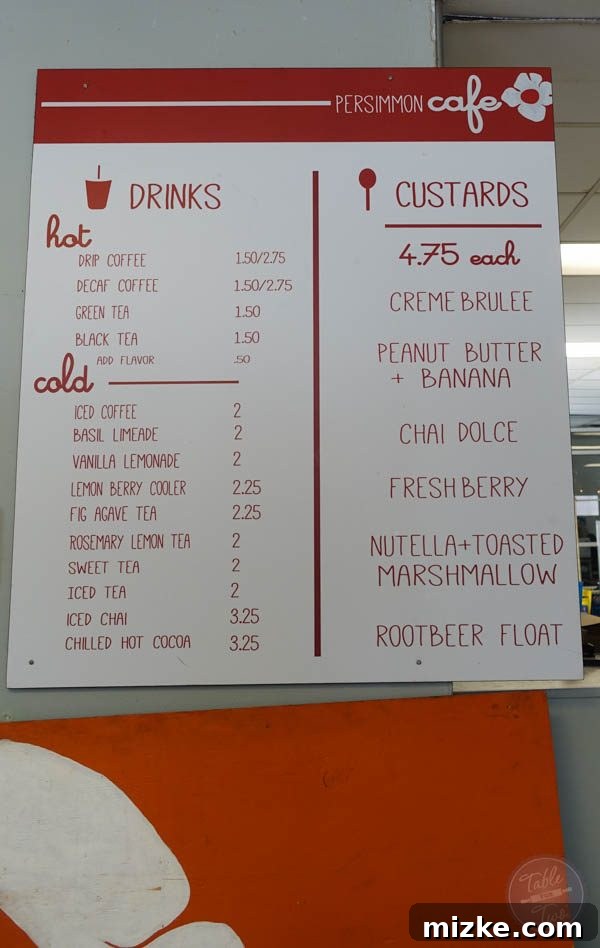 PERSIMMON cafe
DRINKS
hot
DRIP COFFEE 1.50/2.75
DECAF COFFEE 1.50/2.75
GREEN TEA 1.50
BLACK TEA 1.50
ADD FLAVOR .50
cold
ICED COFFEE 2
BASIL LIMEADE 2
VANILLA LEMONADE 2
LEMON BERRY COOLER 2.25
FIG AGAVE TEA 2.25
ROSEMARY LEMON TEA 2
SWEET TEA 2
ICED TEA 2
ICED CHAI 3.25
CHILLED HOT COCOA 3.25
CUSTARDS
4.75 each
CREME BRULEE
PEANUT BUTTER
+ BANANA
CHAI DOLCE
FRESH BERRY
NUTELLA+TOASTED
MARSHMALLOW
ROOTBEER FLOAT
Table
Two
mizke.com